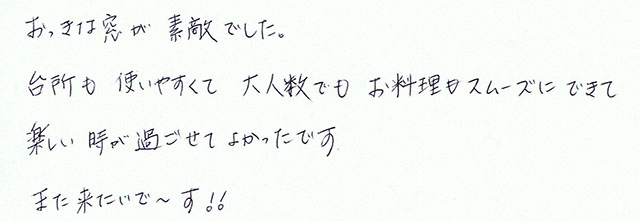 おっきな窓が素敵でした。
台所も使いやすくて大人数でもお料理もスムーズにできて
楽しい時が過ごせてよかったです
また来たいで〜す!!